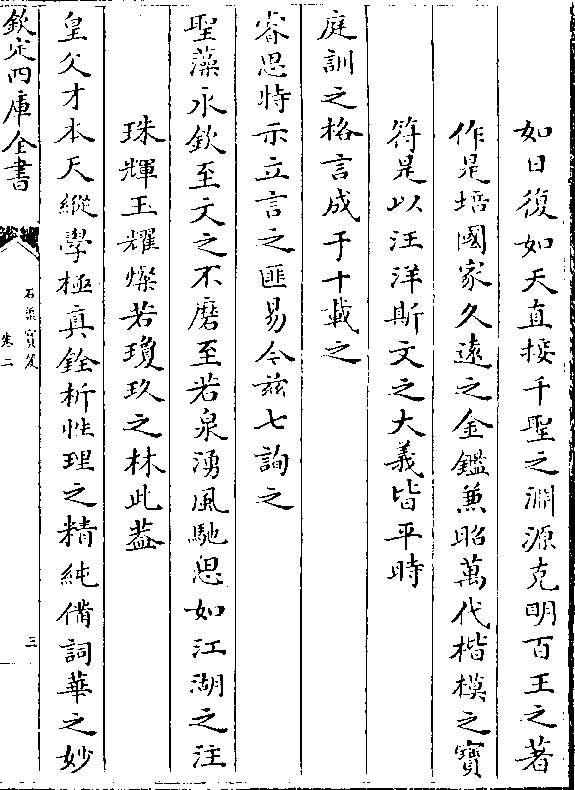 如日復如天直接千聖之淵源克明百王之著
作是培國家久遠之金鑑兼昭萬代楷模之寶
符是以汪洋斯文之大義皆平時
庭訓之格言成于十載之
睿思特示立言之匪易今兹七詢之
聖藻永欽至文之不磨至若泉湧風馳思如江湖之注
珠輝玉耀燦若瓊玖之林此葢
皇父才本天縱學極真銓析性理之精純備詞華之妙
欽定四庫全書
石渠寶笈
卷二
三